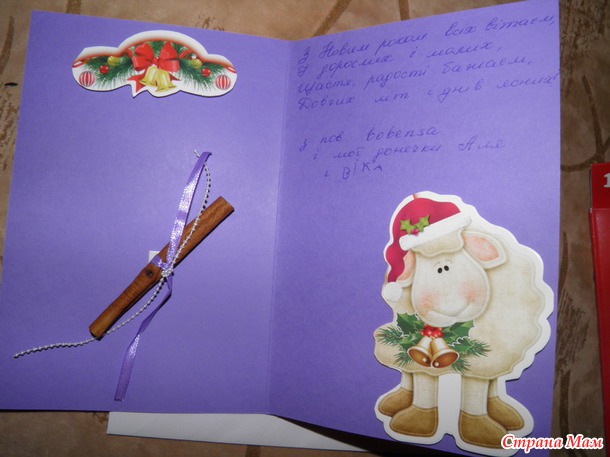 З Новим роком всіх вітаєм,
І дорослих і малих,
Щастя, радості бажаєм,
Довгих літ і днів ясних!
З пов bobenza
і мої донечки Аля
і ВІКА
1
Страна Мам